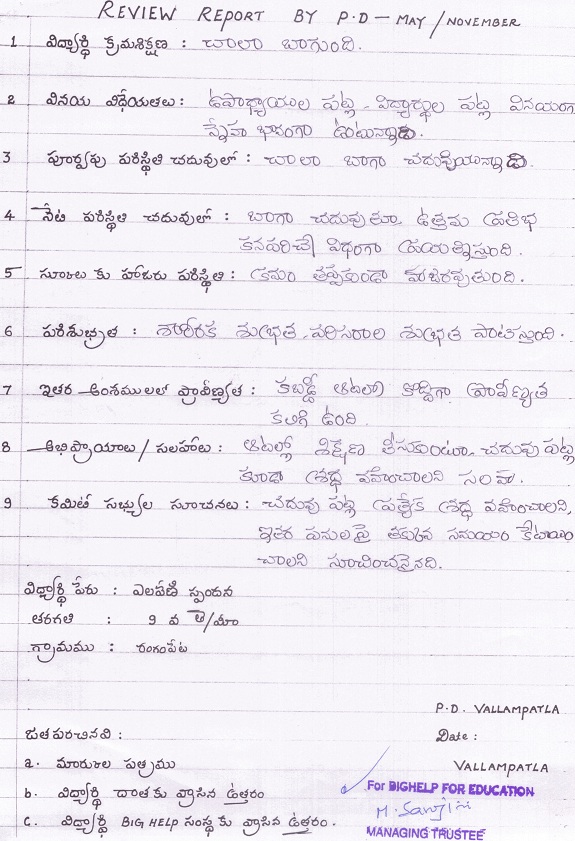 REVIEW REPORT BY P.D – MAY / NOVEMBER
1 విద్యార్థి క్రమశిక్షణ : చాలా బాగుంది.
2 వినయ విధేయతలు: ఉపాధ్యాయుల పట్ల, విద్యార్థుల పట్ల వినయంగా
స్నేహ భావంగా ఉంటున్నాడు.
3 పూర్వపు పరిస్థితి చదువులో : చాలా బాగా చదువుతున్నాడు.
4 నేటి పరిస్థితి చదువులో : బాగా చదువుతూ ఉత్తమ ప్రతిభ
కనపరిచే విధంగా ప్రయత్నిస్తుంది.
5 స్కూలు కు హాజరు పరిస్థితి : క్రమం తప్పకుండా హాజరవుతుంది.
6 పరిశుభ్రత : శారీరక శుభ్రత, పరిసరాల శుభ్రత పాటిస్తుంది.
7 ఇతర అంశములలో ప్రావీణ్యత : కబడ్డీ ఆటలో కొద్దిగా ప్రావీణ్యత
కలిగి ఉంది.
8 అభిప్రాయాలు / సలహాలు : ఆటల్లో శిక్షణ తీసుకుంటూ, చదువు పట్ల
కూడా శ్రద్ధ వహించాలని సలహా.
9 కమిటీ సభ్యుల సూచనలు : చదువు పట్ల ప్రత్యేక శ్రద్ధ వహించాలని,
ఇతర పనులపై తక్కువ సమయం కేటాయిం
చాలని సూచించనైనది.
విద్యార్థి పేరు : ఎలపేణి స్పందన
తరగతి : 9 వ తె/మీ
గ్రామము : రంగంపేట
P.D. VALLAMPATLA
జతపరచినవి : Date :
a. మార్కుల పత్రము VALLAMPATLA
b. విద్యార్థి దాతకు వ్రాసిన ఉత్తరం For BIGHELP FOR EDUCATION
c. విద్యార్థి BIG HELP సంస్థకు వ్రాసిన ఉత్తరం.
MANAGING TRUSTEE